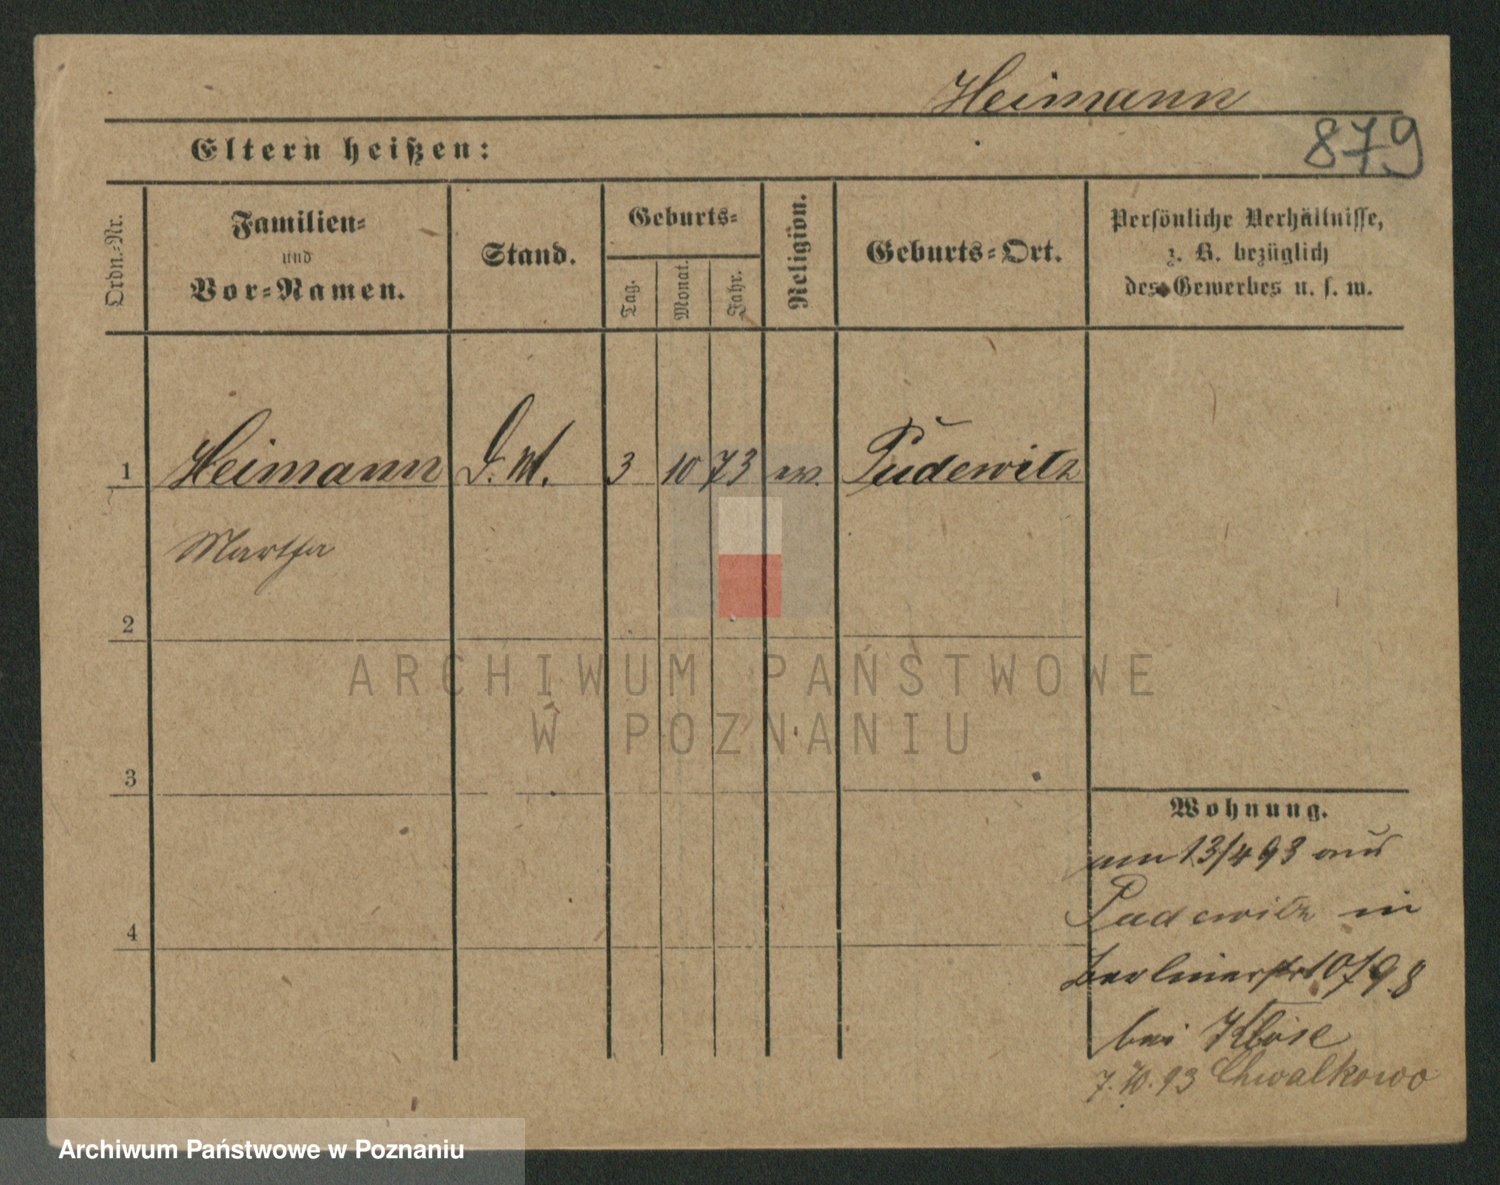 Heimann
879
Eltern heißen:
Ordn.-Nr.
Familien-
und
Vor-Namen.
Stand.
Geburts-
Tag.
Monat.
Jahr.
Religion.
Geburts-Ort.
Persönliche Verhältnisse,
z. B. bezüglich
des Gewerbes u. s. w.
1 Heimann D. M. 3 10 73 ev. Pudewitz
Martha
2
ARCHIWUM PAŃSTWOWE
W POZNANIU
3
Wohnung.
am 13/4 93 aus
Pudewitz in
Berlinerstr 10/98
bei Klose
7.10.93 Chwalkowo
4
Archiwum Państwowe w Poznaniu